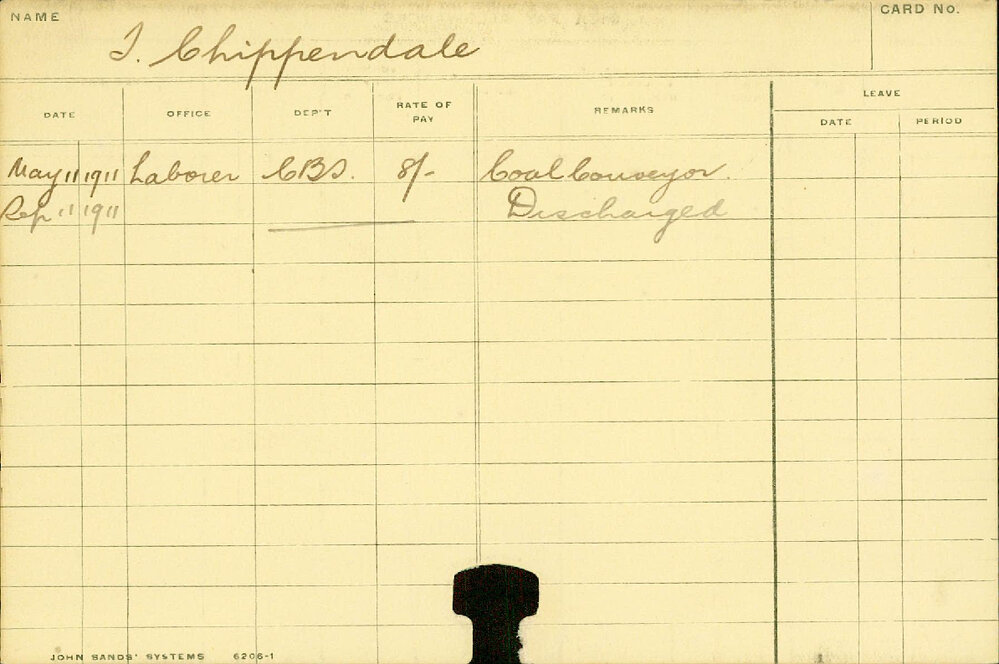 NAME
CARD No.
J. Chippendale
DATE OFFICE DEP'T RATE OF PAY REMARKS LEAVE
DATE PERIOD
May 11 1911 Laborer 8/- Coal Conveyor.
Sep 11 1911 Discharged
JOHN SANDS' SYSTEMS 6206-1